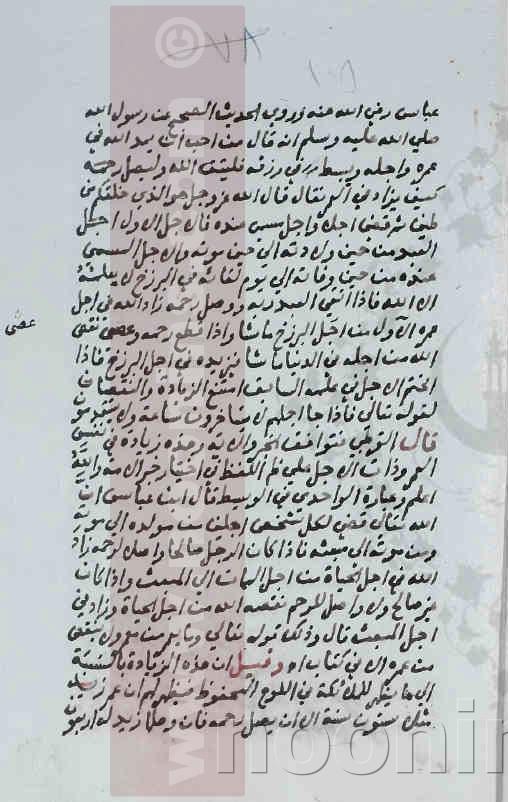 عباس رضي الله عنه وروي الحديث الصحيح عن رسول الله
صلي الله عليه وسلم انه قال من احب ان يمد الله في
عمره واجله ويبسط في رزقه فليتق الله وليصل رحمه
كيف يزاد في الو يقال قال الله عز وجل هو الذي خلقكم من
طين ثم قضي اجلا واجل مسمي عنده قال جل الاول اجل
العبد من حين ولادته الي حين موته والاجل المسمي
عنده من حين وفاته الي يوم لقائه في البرزخ لا يعلمه
الا الله فاذا اتقي العبد ربه ووصل رحمه زاد الله في اجل
عمره الاول من اجل البرزخ ما شا واذا قطع رحمه وعصي نقص
الله من اجله في الدنيا ما شا فيزيده في اجل البرزخ فاذا
انحتم الاجل في علمه السابق امتنع الزيادة والنقصان
لقوله تعالي فاذا جا اجلهم لا يستاخرون ساعة ولا يستقدمون
قال القرطبي فتوافق الخبر والاية وهذه زيادة في نفس
العمر وذات الاجل علي ظاهر اللفظ في اختيار حبر الامة والله
اعلم وعبارة الواحدي في الوسيط قال ابن عباس ان
الله تعالي قضي لكل شخص اجلين من مولده الي موته
ومن موته الي مبعثه فاذا كان الرجل صالحا واصلا لرحمه زاد
الله في اجل الحياة من اجل الممات الي المبعث واذا كان
غير صالح ولا واصل للرحم نقصه الله من اجل الحياة وزاد في
اجل المبعث قال وذلك قوله تعالي وما يعمر من معمر ولا ينقص
من عمره الا في كتاب اه وقيل ان هذه الزيادة بالنسبة
الي ما يظهر للملائكة في اللوح المحفوظ فيظهر لهم ان عمر زيد
مثلا ستون سنة الا ان يصل رحمه فان وصلها زيد له اربعون
عصي
noonin
www
©